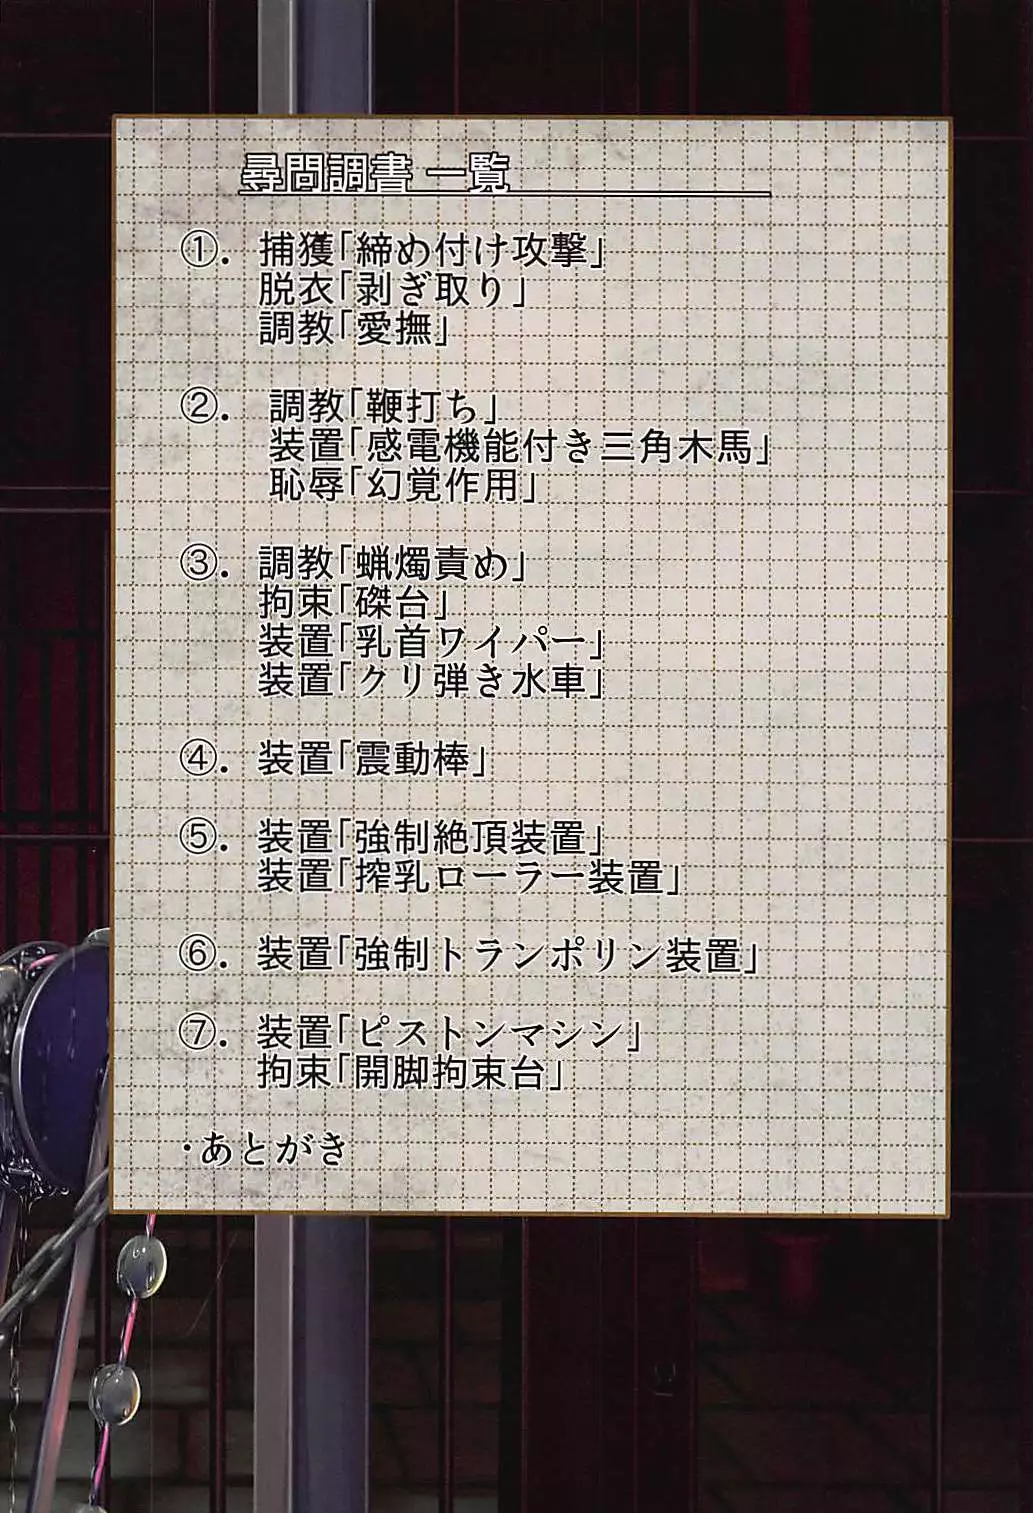 尋問調書 一覧
①. 捕獲「締め付け攻撃」
脱衣「剥ぎ取り」
調教「愛撫」
②. 調教「鞭打ち」
装置「感電機能付き三角木馬」
恥辱「幻覚作用」
③. 調教「蝋燭責め」
拘束「磔台」
装置「乳首ワイパー」
装置「クリ弾き水車」
④. 装置「震動棒」
⑤. 装置「強制絶頂装置」
装置「搾乳ローラー装置」
⑥. 装置「強制トランポリン装置」
⑦. 装置「ピストンマシン」
拘束「開脚拘束台」
・あとがき